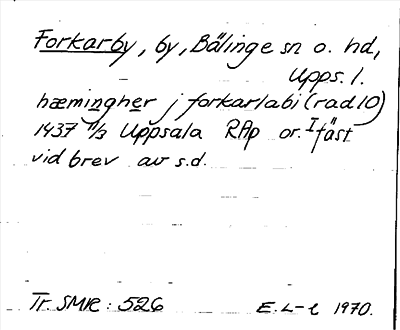 Forkarby, by, Bälinge sn o. hd,
Upps. l.
hæmingher j forkarlabi (rad 10)
1437 11/3 Uppsala RAp or. I fäst
vid brev av s.d.
Tr. SMR: 526 E. L-l 1970.